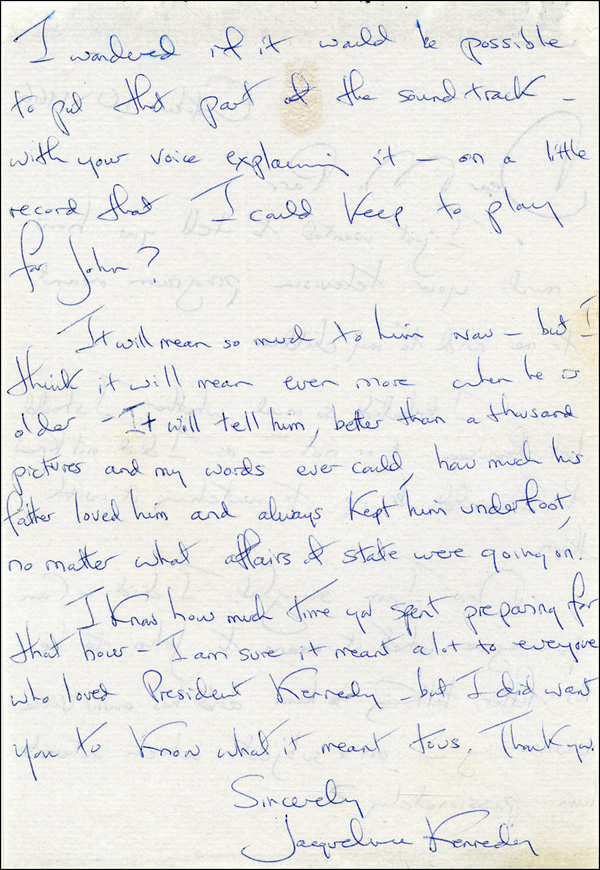 I wondered if it would be possible
to put that part of the sound track -
with your voice explaining it - on a little
record that I could keep to play
for John?
It will mean so much to him now - but I
think it will mean even more when he is
older - It will tell him, better than a thousand
pictures and my words ever could, how much his
father loved him and always kept him underfoot,
no matter what affairs of state were going on.
I know how much time you spent preparing for
that hour - I am sure it meant a lot to everyone
who loved President Kennedy - but I did want
you to know what it meant to us. Thank you.
Sincerely
Jacqueline Kennedy